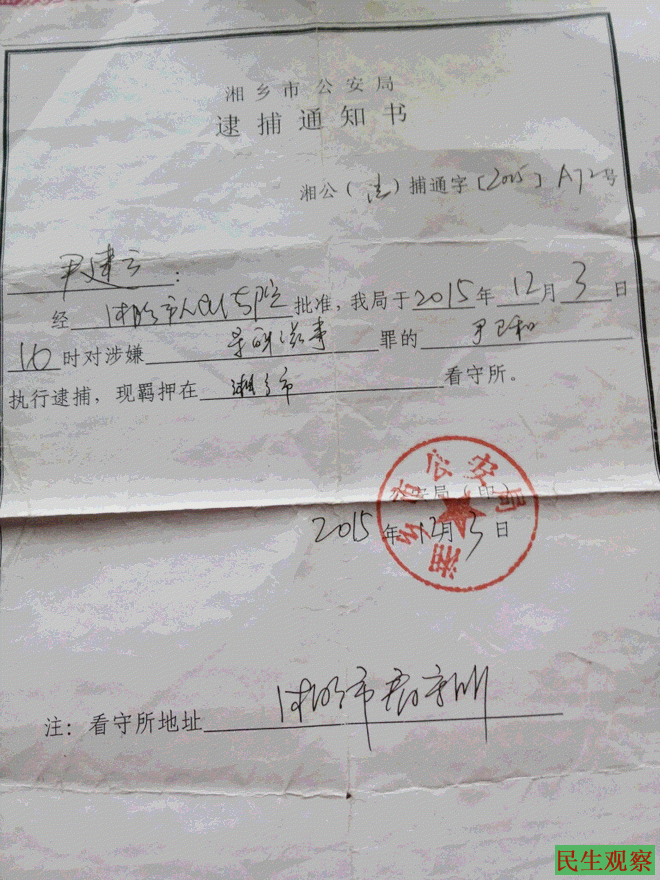 湘乡市公安局
逮捕通知书
湘公（法）捕通字〔2015〕A72号
尹建云：
经湘乡市人民法院批准，我局于2015年12月3日
10时对涉嫌寻衅滋事罪的尹卫和
执行逮捕，现羁押在湘乡市看守所。
湘乡市公安局
公安局（印）
2015年12月3日
注：看守所地址湘乡市看守所
民生观察